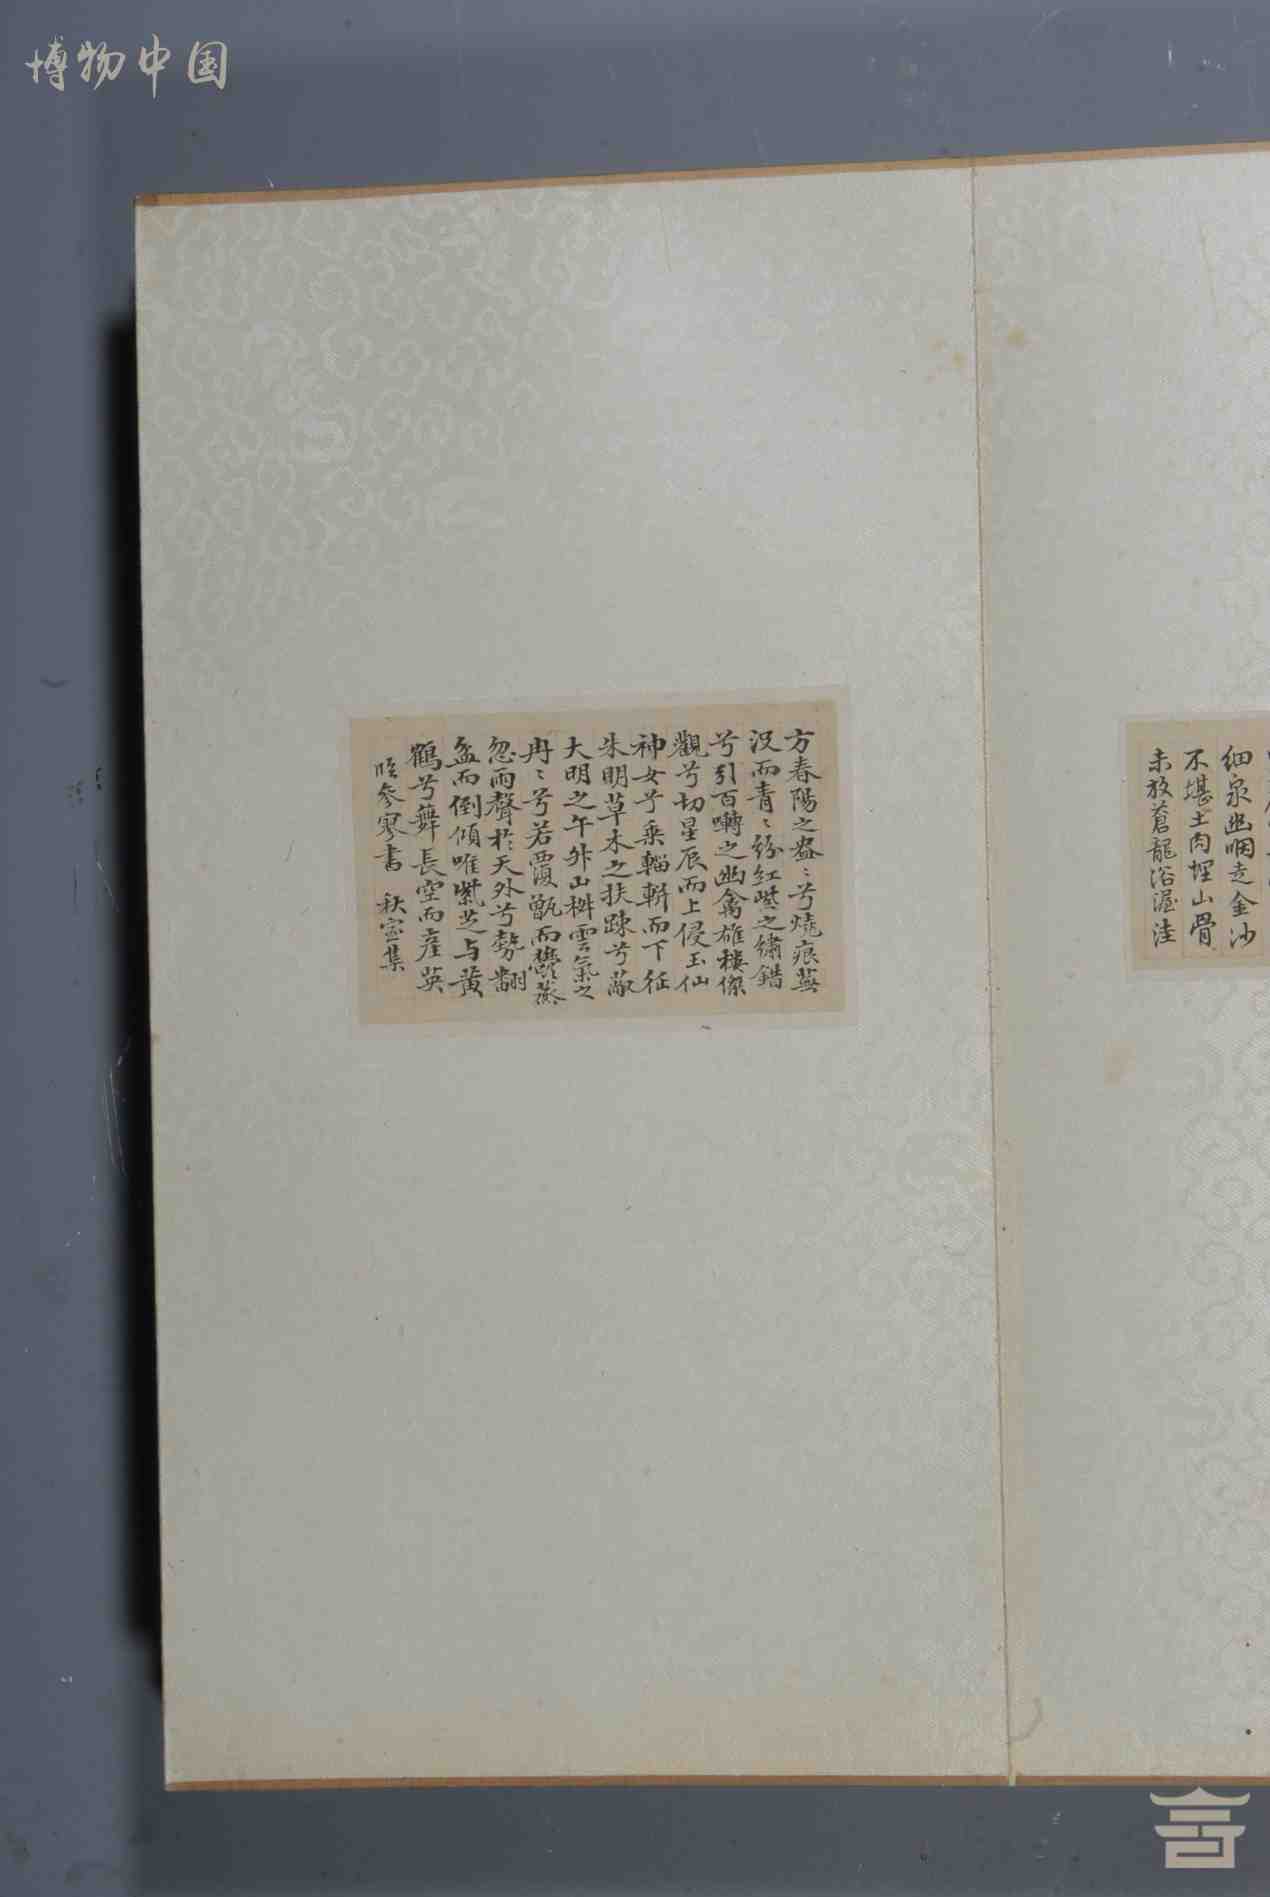 博物中国
細泉幽咽走金沙
不堪土肉埋山骨
未放蒼龍浴渥洼
方春陽之盎〻兮燒痕蕪
沒而青〻紛紅紫之繡錯
兮引百囀之幽禽雄穠傑
觀兮切星辰而上侵玉仙
神女兮乘輜軿而下征
朱明草木之扶疎兮敵
大明之午外山椕雲氣之
冉〻兮若覆甑而鬱蒸
忽雨聲於天外兮勢翻
盆而倒傾唯紫芝与黃
鶴兮舞長空而產英
臨參寥書 秋室集